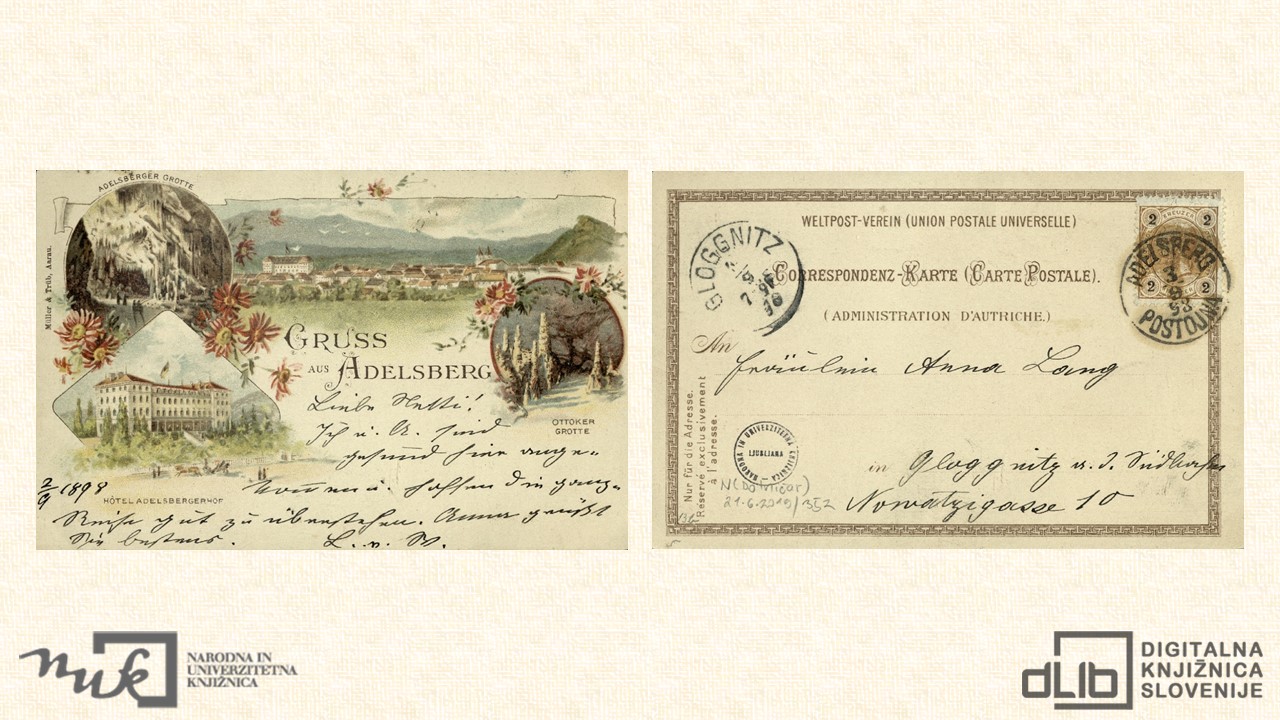 ADELSBERGER GROTTE
Müller & Trüb, Aarau.
GRUSS
AUS ADELSBERG
OTTOKER
GROTTE
HÔTEL ADELSBERGERHOF
Liebe Netti!
Ich u. A. sind
gesund hier ange-
kommen u. hoffen die ganze
2/9 1898
Reise gut zu überstehen. Anna grüßt
Sie bestens.
WELTPOST-VEREIN (UNION POSTALE UNIVERSELLE)
CORRESPONDENZ-KARTE (CARTE POSTALE).
(ADMINISTRATION D'AUTRICHE.)
GLOGGNITZ
2 KREUZER 2
2 2
ADELSBERG
POSTOJNA
An
Fräulein Anna Lang
in Gloggnitz a. d. Südbahn
Nowatzigasse 10
Nur für die Adresse.
Réservé exclusivement
à l'adresse.
NARODNA IN UNIVERZITETNA KNJIŽNICA
LJUBLJANA
21.6.2019/352
nuk
NARODNA IN
UNIVERZITETNA
KNJIŽNICA
dLib
DIGITALNA
KNJIŽNICA
SLOVENIJE